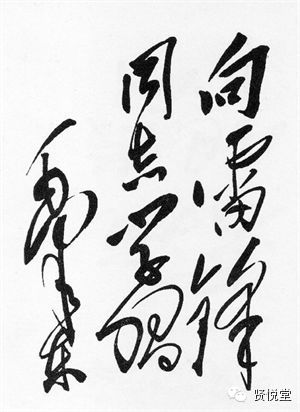 向雷锋
同志学习
毛泽东
贤悦堂